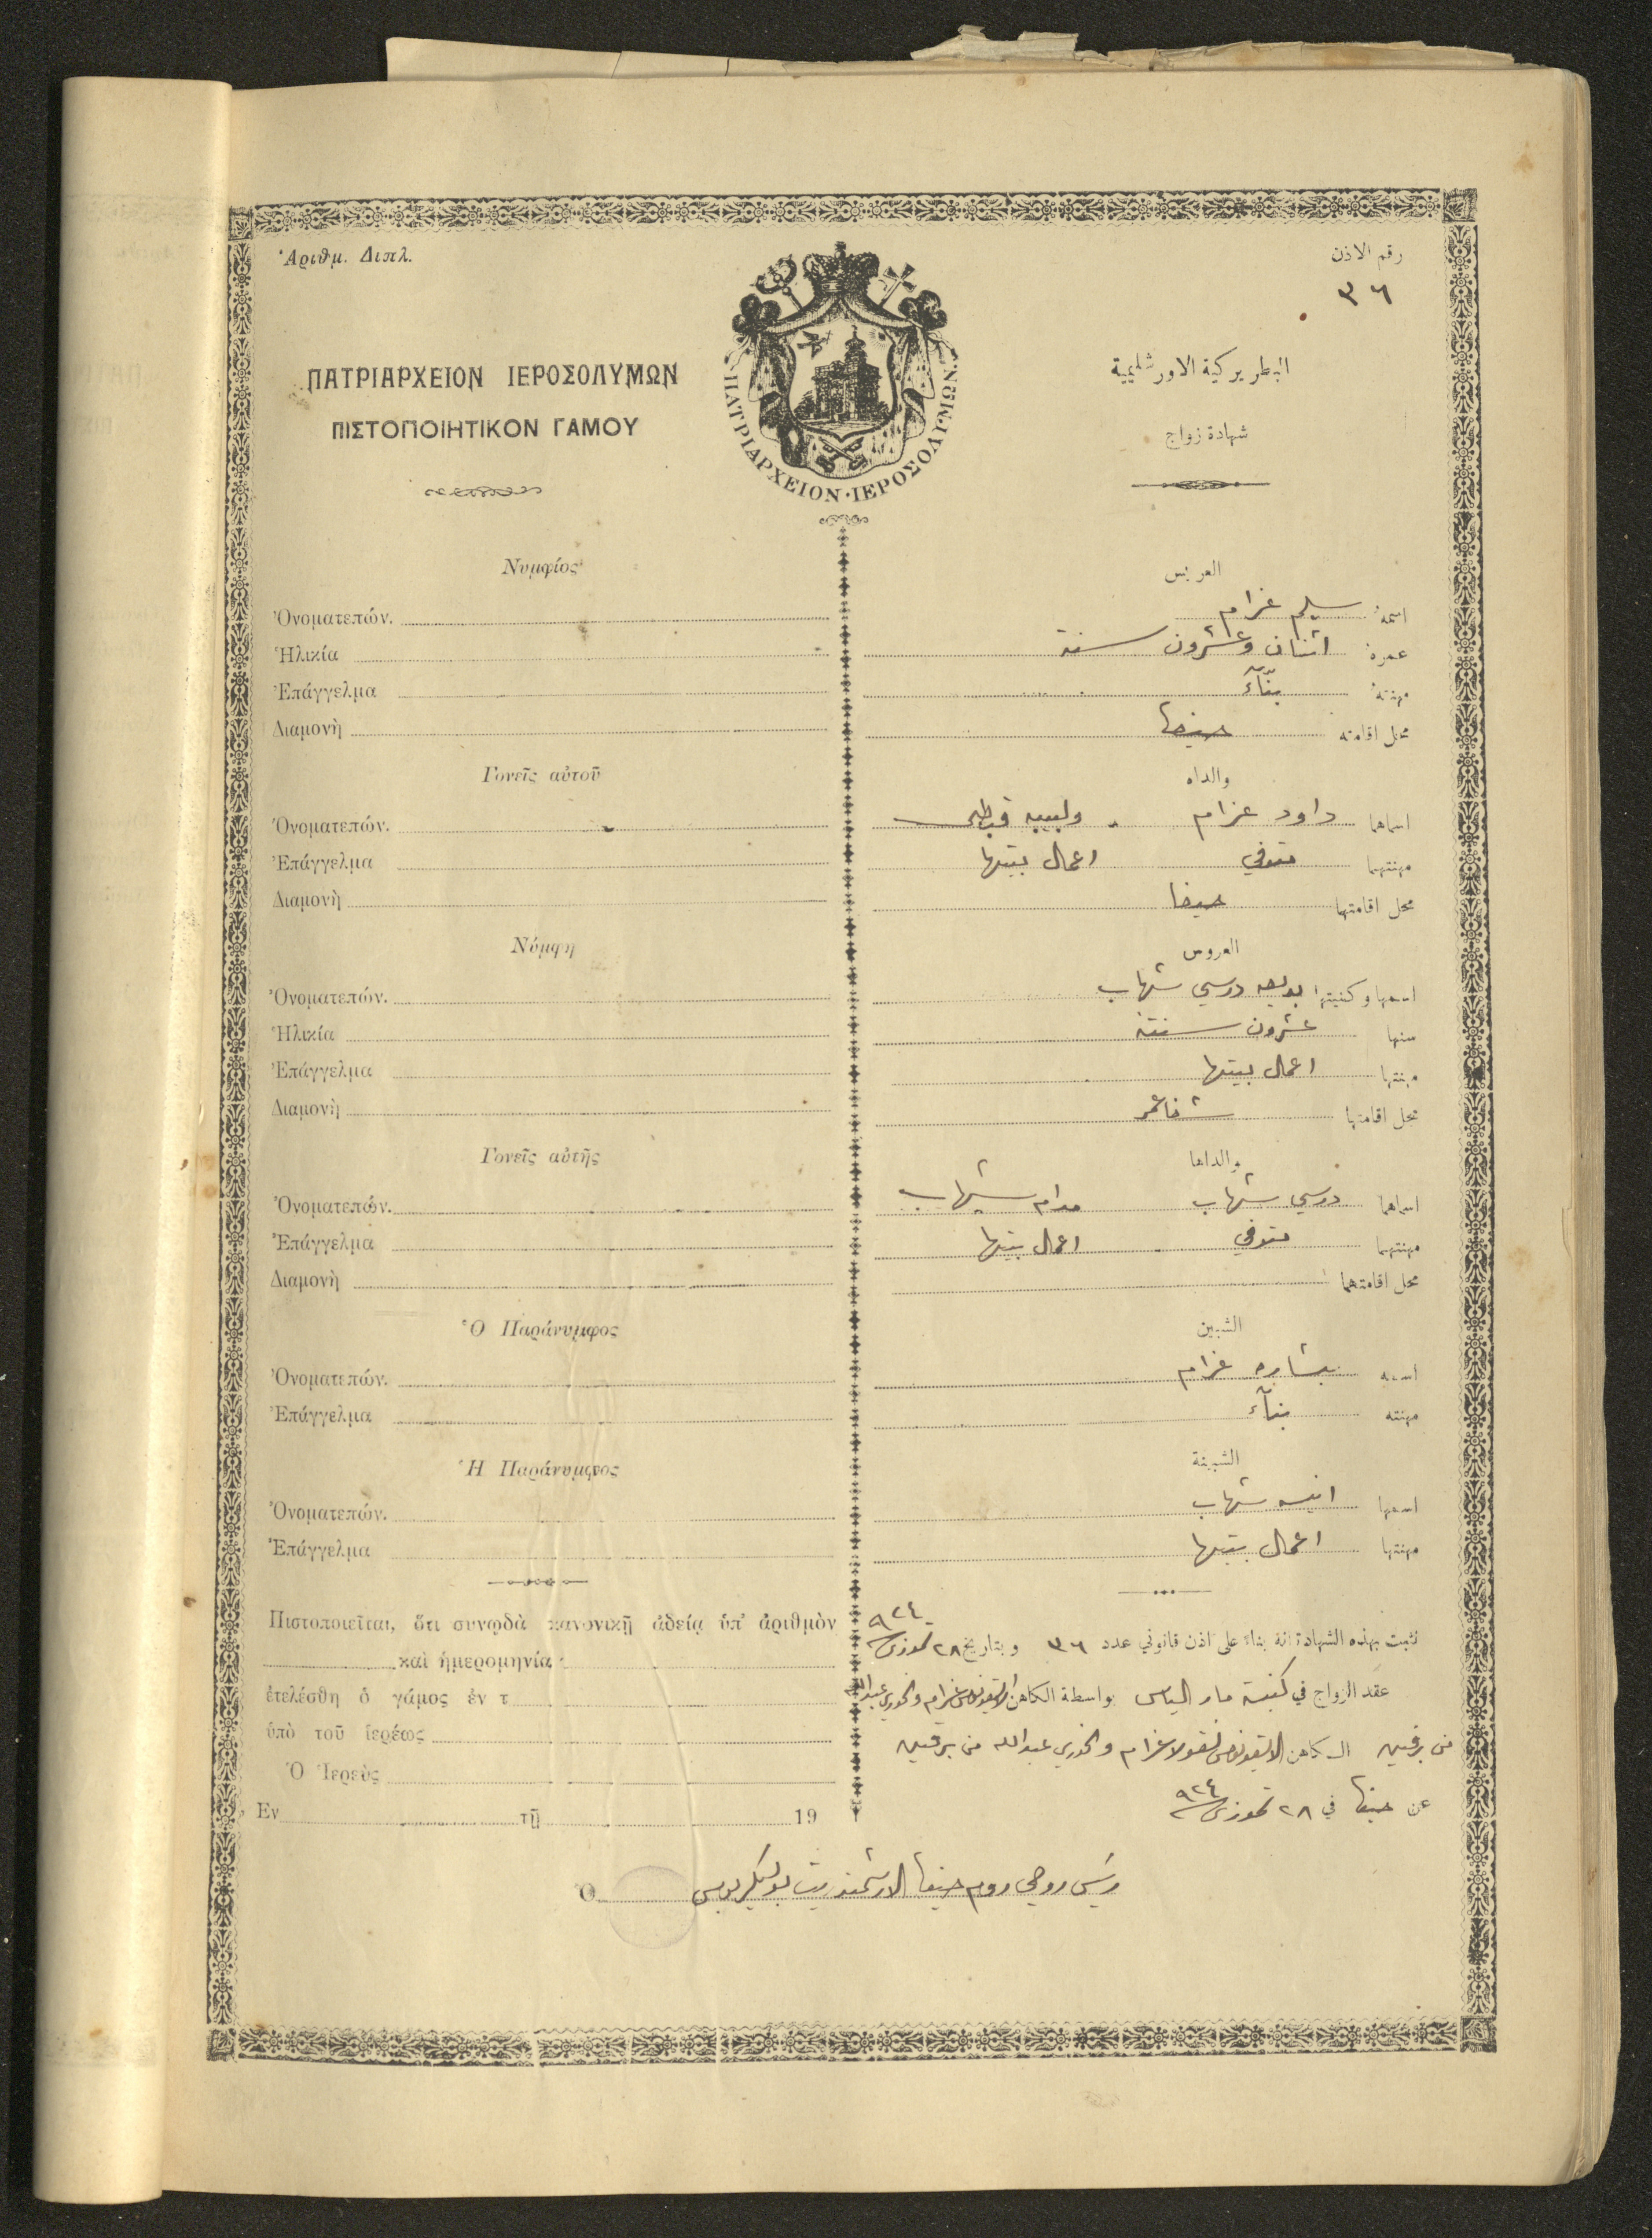 Ἀριθμ. Διπλ.
رقم الاذن
٣٦
ΠΑΤΡΙΑΡΧΕΙΟΝ ΙΕΡΟΣΟΛΥΜΩΝ
ΠΙΣΤΟΠΟΙΗΤΙΚΟΝ ΓΑΜΟΥ
ΠΑΤΡΙΑΡΧΕΙΟΝ·ΙΕΡΟΣΟΛΥΜΩΝ
البطريركية الاورشليمية
شهادة زواج
Νυμφίος
Ὀνοματεπών.
Ἡλικία
Ἐπάγγελμα
Διαμονὴ
Γονεῖς αὐτοῦ
Ὀνοματεπών.
Ἐπάγγελμα
Διαμονὴ
Νύμφη
Ὀνοματεπών.
Ἡλικία
Ἐπάγγελμα
Διαμονὴ
Γονεῖς αὐτῆς
Ὀνοματεπών.
Ἐπάγγελμα
Διαμονὴ
Ὁ Παράνυμφος
Ὀνοματεπών.
Ἐπάγγελμα
Ἡ Παράνυμφος
Ὀνοματεπών.
Ἐπάγγελμα
Πιστοποιεῖται, ὅτι συνῳδὰ κανονικῇ ἀδείᾳ ὑπ' ἀριθμὸν
καὶ ἡμερομηνία
ἐτελέσθη ὁ γάμος ἐν τ
ὑπὸ τοῦ ἱερέως
Ὁ Ἱερεὺς
Ἐν τῇ 19
العريس
اسمه سليم عزام
عمره اثنان وعشرون سنة
مهنته بنّآء
محل اقامته حيفا
والداه
اسماهما داود عزام ولبيبه قبطي
مهنتهما متوفي اعمال بيتها
محل اقامتهما حيفا
العروس
اسمها وكنيتها شهاب
سنها عشرون سنة
مهنتها اعمال بيتها
محل اقامتها شفاعمر
والداها
اسماهما شهاب مدام شهاب
مهنتهما متوفي اعمال بيتها
محل اقامتهما
الشبين
اسمه بشاره عزام
مهنته بنآء
الشبينة
اسمها انيسه شهاب
مهنتها اعمال بيتها
نثبت بهذه الشهادة انه بناء على اذن قانوني عدد ٣٦ وبتاريخ ٢٨ تموز سنة ٩٢٤
عقد الزواج في كنيسة مار الياس بواسطة الكاهن عزام والخوري عبدالله
من برقين الكاهن نقولا عزام والخوري عبدالله من برقين
عن حيفا في ٢٨ تموز سنة ٩٢٤
Ὁ رئيس روحي روم حيفا الارشمندريت